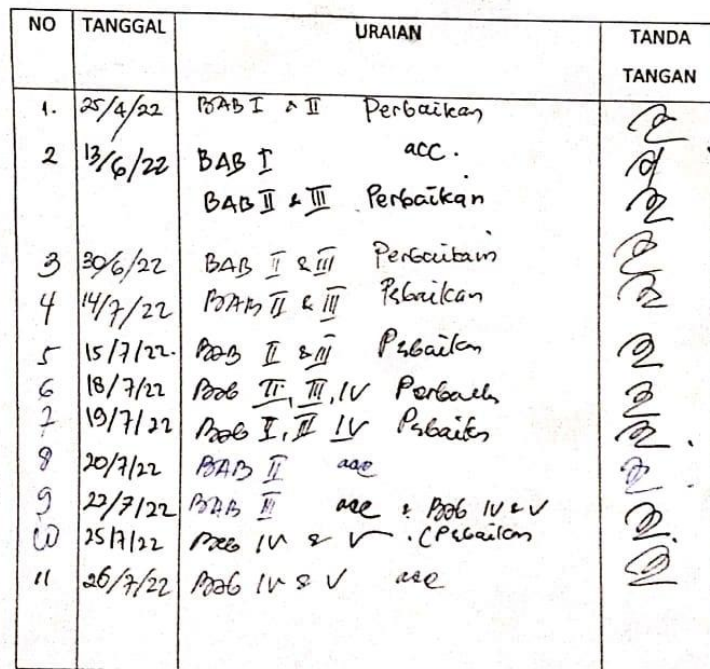 NO TANGGAL URAIAN TANDA TANGAN
1. 25/4/22 BAB I & II Perbaikan
2 13/6/22 BAB I acc.
BAB II & III Perbaikan
3 30/6/22 BAB II & III Perbaikan
4 14/7/22 BAB II & III Pebaikan
5 15/7/22. Bab II & III Pebaikan
6 18/7/22 Bab II, III, IV
7 19/7/22 Bab IV
8 20/7/22 BAB II acc
9 22/7/22 BAB III acc & Bab IV & V
10 25/7/22 Bab IV & V (Pebaikan
11 26/7/22 Bab IV & V acc